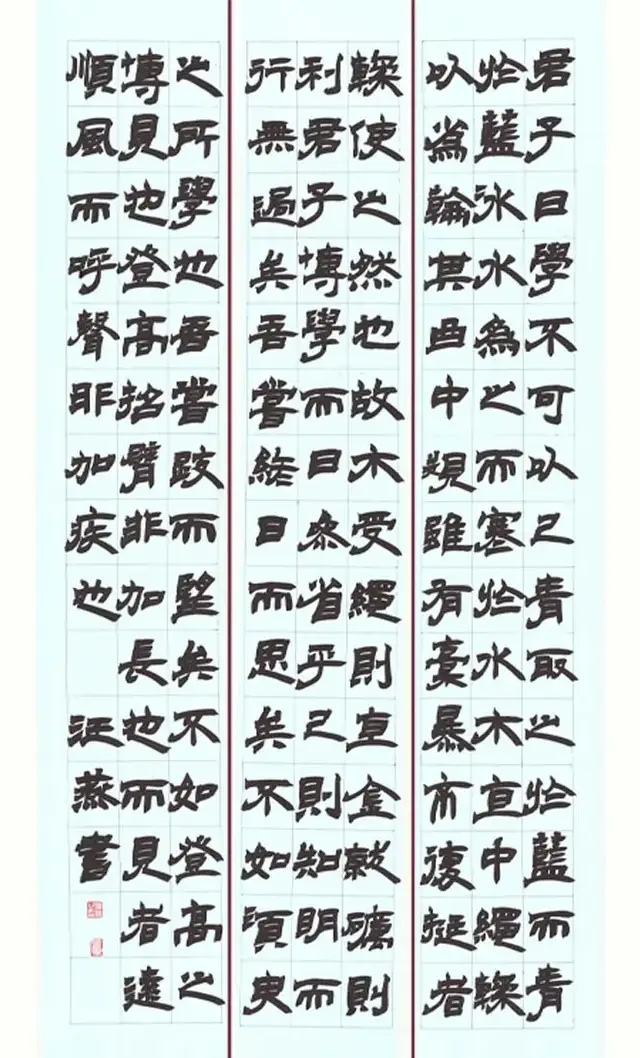 君子曰學不可以已青取之於藍而青
於藍冰水為之而寒於水木直中繩輮
以為輪其曲中規雖有槀暴不復挺者
輮使之然也故木受繩則直金就礪則
利君子博學而日參省乎己則知明而
行無過矣吾嘗終日而思矣不如須臾
之所學也吾嘗跂而望矣不如登高之
博見也登高招臂非加長也而見者遠
順風而呼聲非加疾也 汪燕書